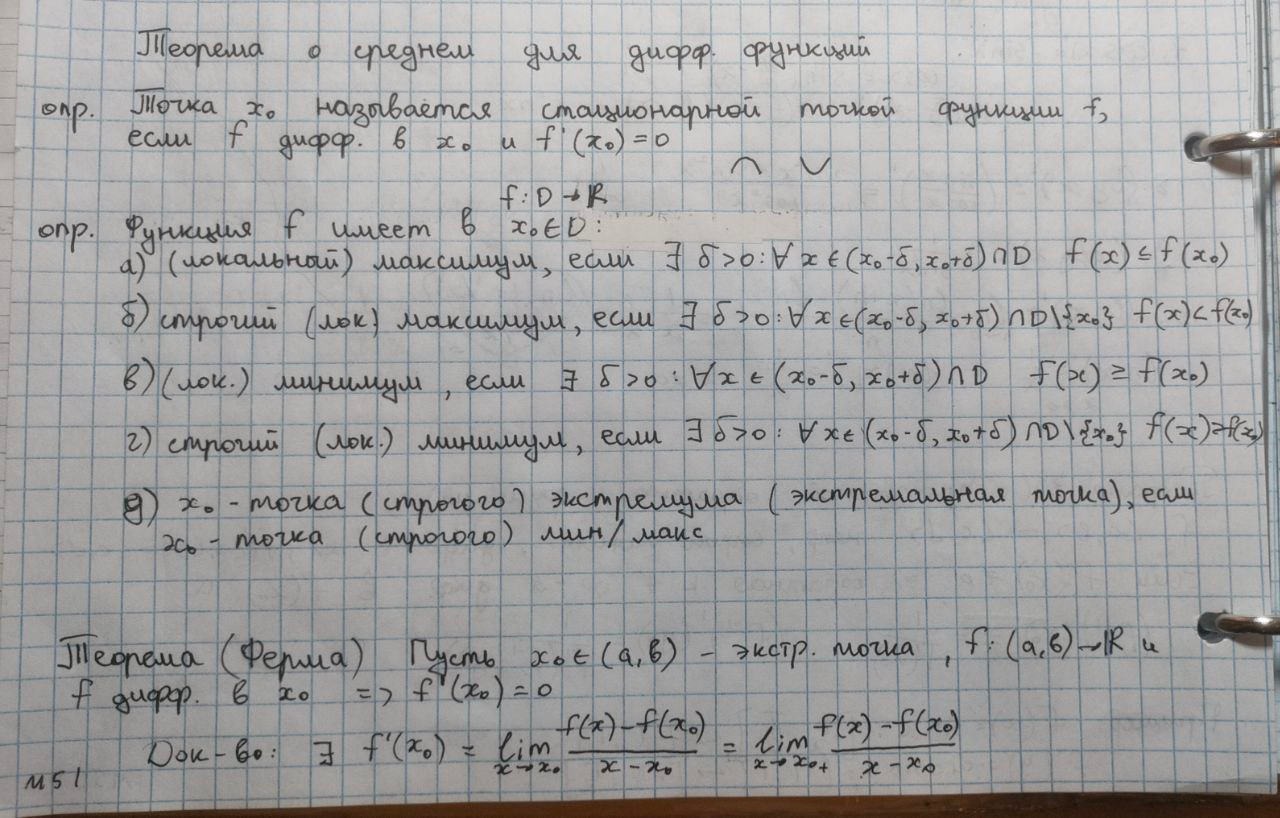 Теорема о среднем для дифф. функций
опр. Точка x₀ называется стационарной точкой функции f,
если f дифф. в x₀ и f'(x₀)=0
f: D→ℝ
опр. Функция f имеет в x₀∈D:
а) (локальный) максимум, если ∃ δ>0: ∀ x∈(x₀-δ, x₀+δ)∩D f(x)≤f(x₀)
б) строгий (лок) максимум, если ∃ δ>0: ∀ x∈(x₀-δ, x₀+δ)∩D\{x₀} f(x)<f(x₀)
в) (лок.) минимум, если ∃ δ>0: ∀x∈(x₀-δ, x₀+δ)∩D f(x)≥f(x₀)
г) строгий (лок.) минимум, если ∃ δ>0: ∀x∈(x₀-δ, x₀+δ)∩D\{x₀} f(x)>f(x₀)
д) x₀ - точка (строгого) экстремума (экстремальная точка), если
x₀ - точка (строгого) мин/макс
Теорема (Ферма) Пусть x₀∈(a,b) - экстр. точка, f: (a,b)→ℝ и
f дифф. в x₀ => f'(x₀)=0
Док-во: ∃ f'(x₀) = lim x→x₀ (f(x)-f(x₀))/(x-x₀) = lim x→x₀+ (f(x)-f(x₀))/(x-x₀)
м51